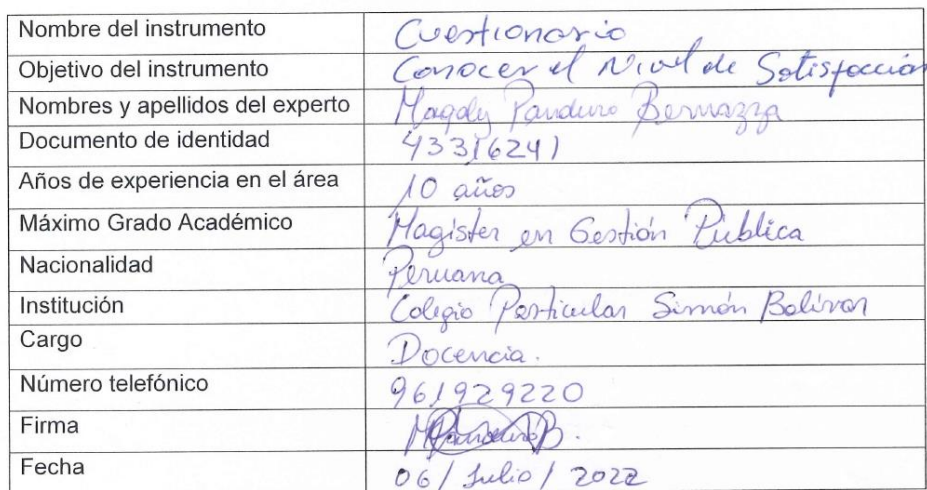 Nombre del instrumento Cuestionario
Objetivo del instrumento Conocer el Nivel de Satisfacción
Nombres y apellidos del experto Magaly Panduro Bernazza
Documento de identidad 43316241
Años de experiencia en el área 10 años
Máximo Grado Académico Magister en Gestión Pública
Nacionalidad Peruana
Institución Colegio Particular Simón Bolívar
Cargo Docencia.
Número telefónico 961929220
Firma MPanduroB.
Fecha 06/Julio/2022